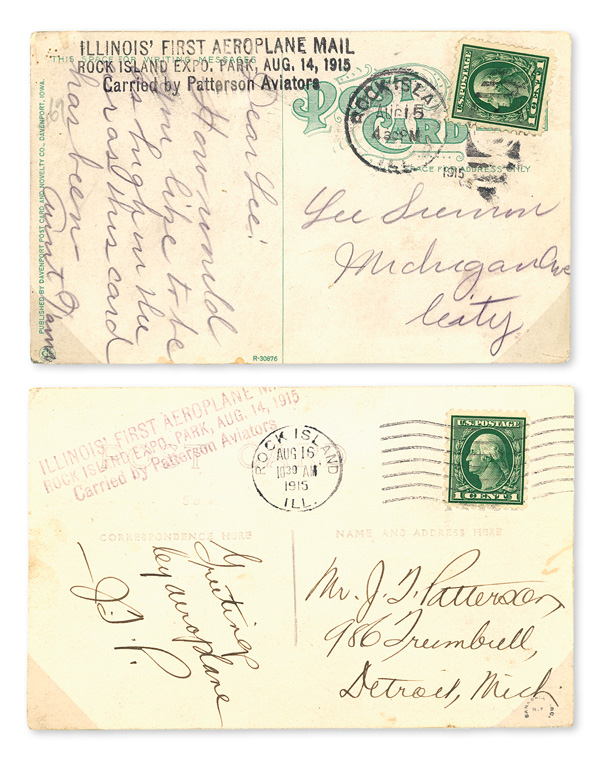 ILLINOIS' FIRST AEROPLANE MAIL
ROCK ISLAND EXPO. PARK, AUG. 14, 1915
Carried by Patterson Aviators
THIS SPACE FOR WRITING MESSAGES
POST CARD
SPACE FOR ADDRESS ONLY
U.S. POSTAGE
1 CENT 1
ROCK ISLAND
AUG 16
PM
ILL.
1915
Dear Lee:
How would
you like to be
as high in the
air as this card
has been
Aunt
Lee
Michigan Ave
City
PUBLISHED BY DAVENPORT POST CARD AND NOVELTY CO., DAVENPORT, IOWA.
R-30876
ILLINOIS' FIRST AEROPLANE
ROCK ISLAND EXPO. PARK, AUG. 14, 1915
Carried by Patterson Aviators
ROCK ISLAND
AUG 16
1030 AM
1915
ILL.
U.S. POSTAGE
1 CENT 1
CORRESPONDENCE HERE
NAME AND ADDRESS HERE
Greetings
by aeroplane
— J. D. P.
Mr. J. D. Patterson,
986 Trumbull,
Detroit, Mich.